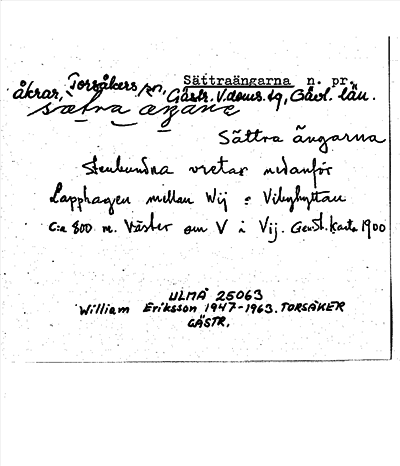 Sättraängarna n. pr.
åkrar, Torsåkers sn, Gästr. V.doms.tg, Gävl. län.
sætra æŋaṇe
Sättra ängarna
Stenbundna vretar nedanför
Lapphagen mellan Wij o Vibyhyttan
c:a 800 m. Väster om V i Vij. Gen.St. Karta 1900
ULMA 25063
William Eriksson 1947-1963. TORSÅKER
GÄSTR.